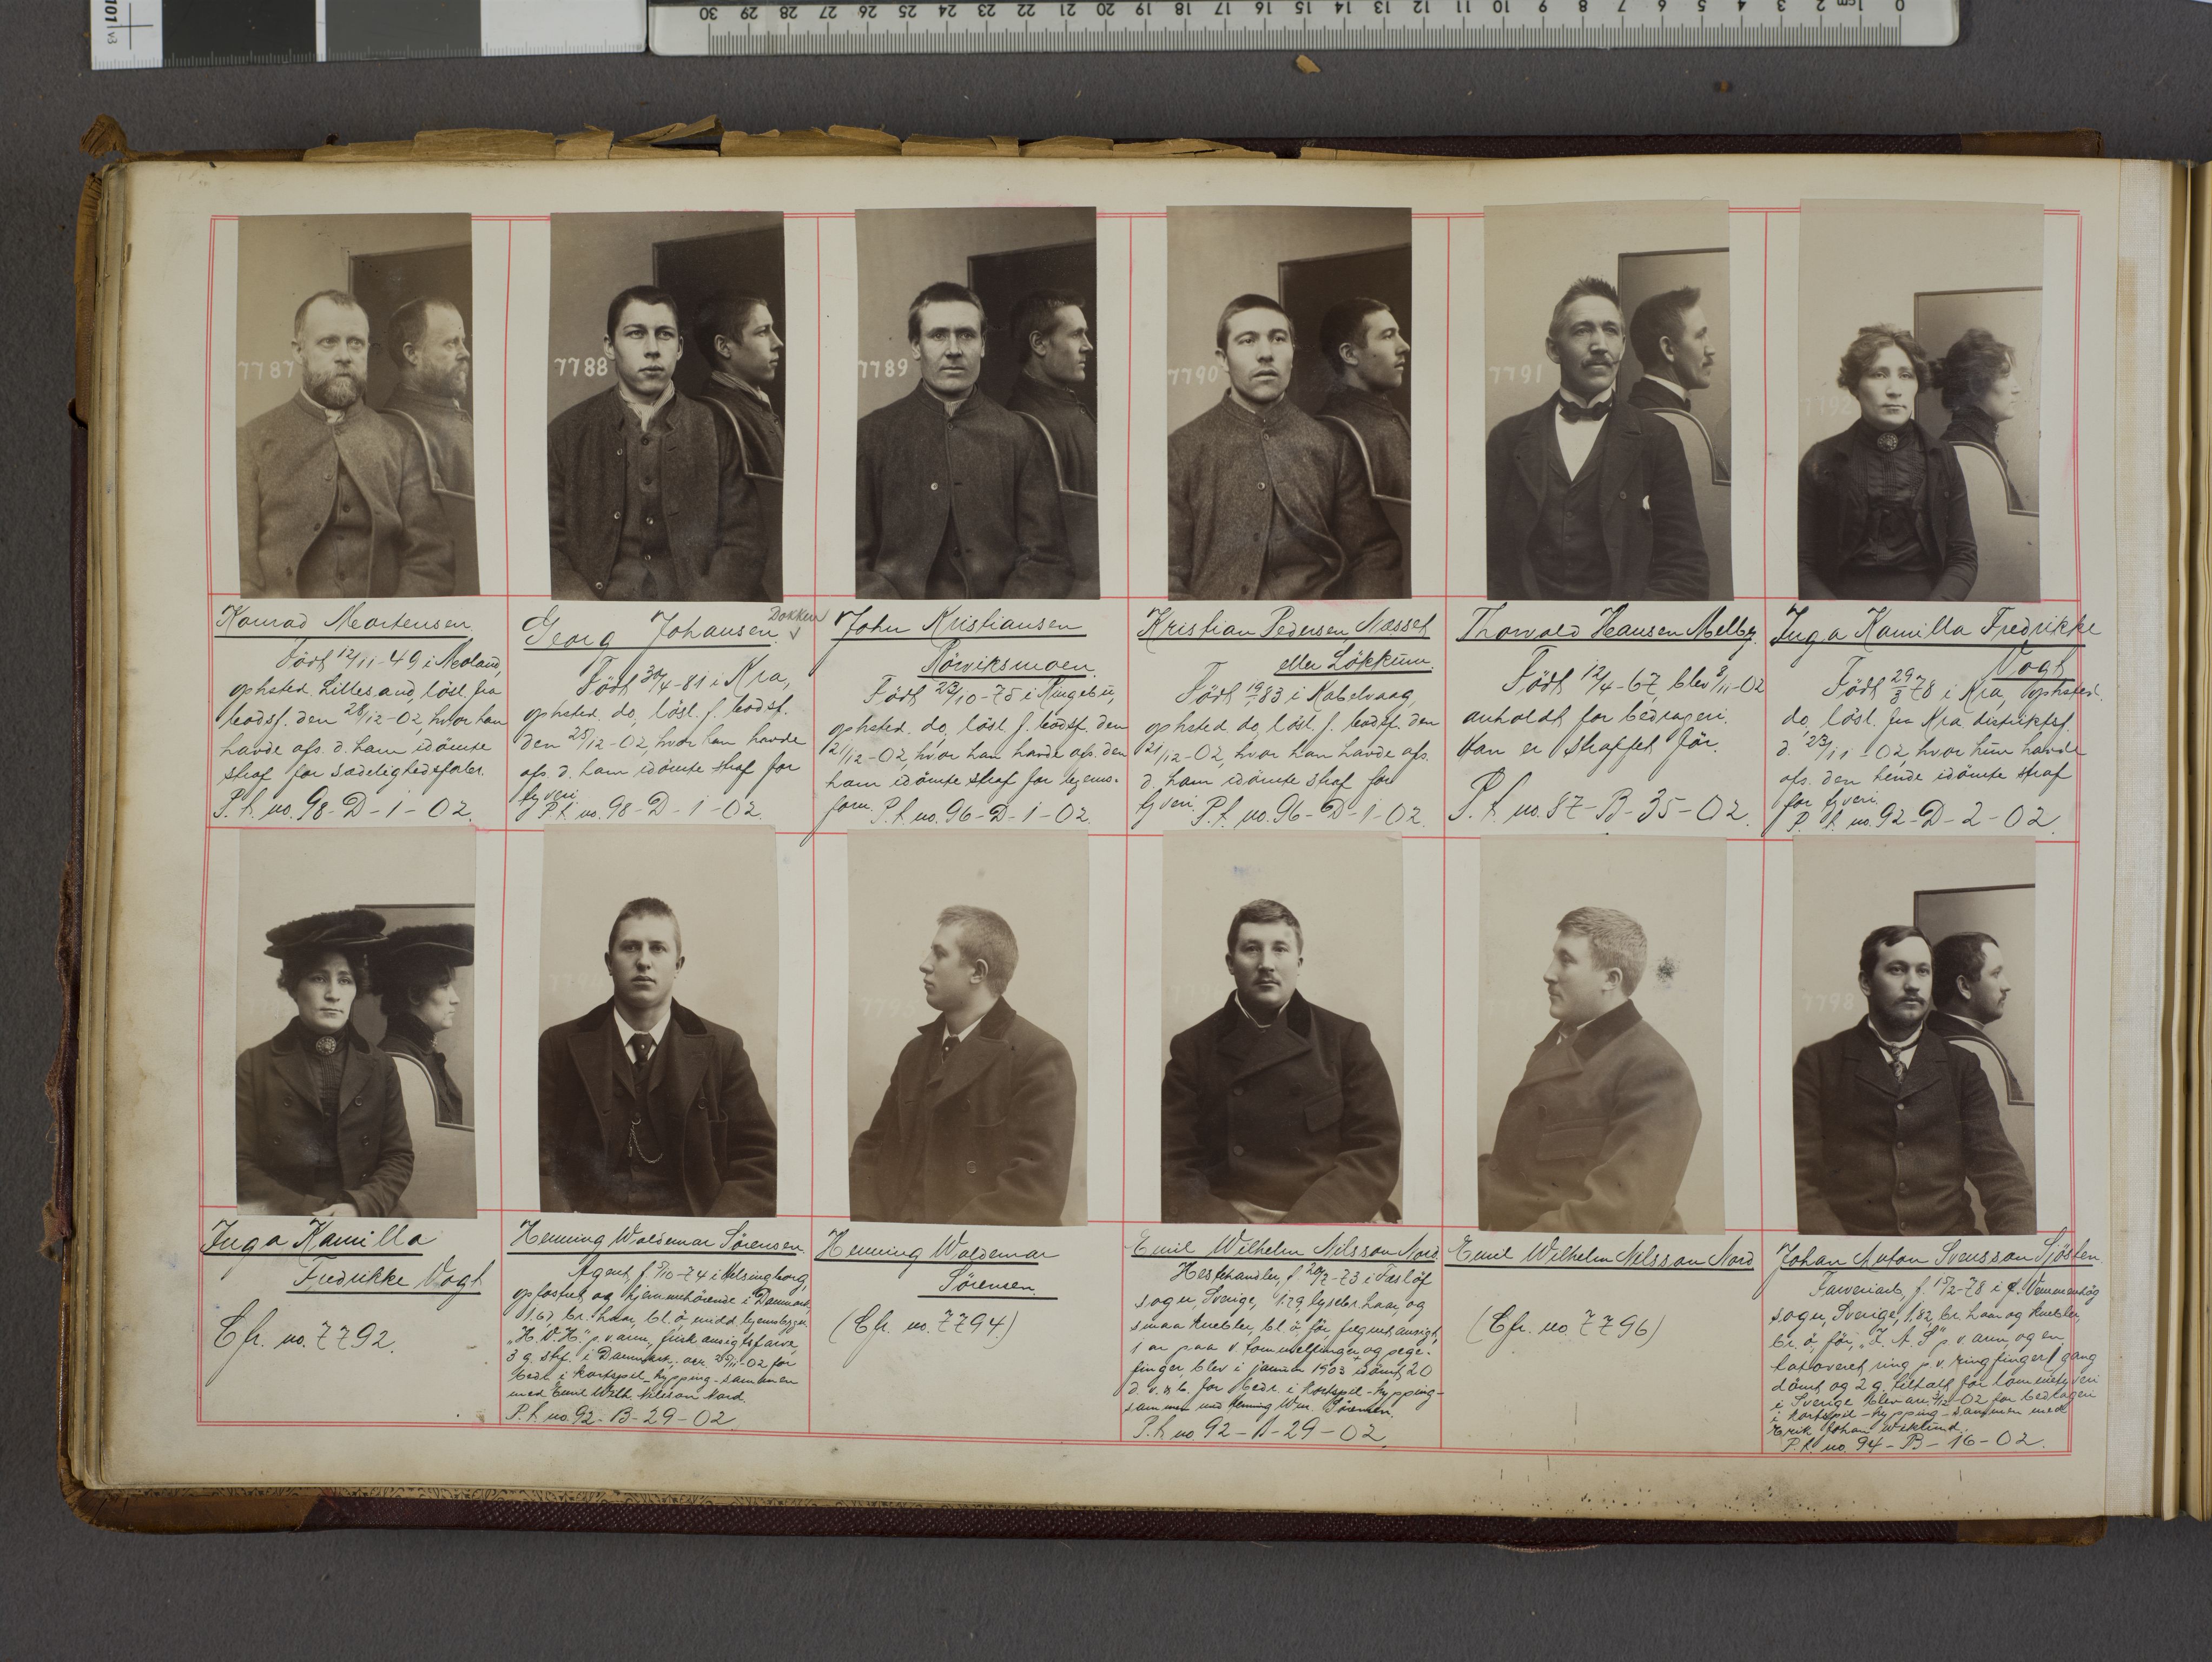 101 v3
30 29 28 27 26 25 24 23 22 21 20 19 18 17 16 15 14 13 12 11 10 9 8 7 6 5 4 3 2 1cm 0
7787
7788
7789
7790
7791
7792
Konrad Mortensen
Födt 12/11-49 i Moland,
ophsted. Lillesand, lösl. fra
bodsf. den 28/12-02, hvor han
havde afs. d. ham idömte
straf for sædelighedsforbr.
P.f. no. 98-D-1-02.
Dokken
Georg Johansen.
Födt 30/4-81 i Kra,
ophsted. do, lösl. f. bodsf.
den 28/12-02, hvor han havde
afs. d. ham idömte straf for
tyveri.
P.f. no. 98-D-1-02.
John Kristiansen
Rörviksmoen.
Födt 23/10-75 i Ringebu,
ophsted. do, lösl. f. bodsf. den
21/12-02, hvor han havde afs. den
ham idömte straf for hjems-
form. P.f. no. 96-D-1-02.
Kristian Pedersen Næsset
eller Lökkum.
Födt 19/ 83 i Kabelvaag,
ophsted do, lösl. f. bodsf. den
21/12-02, hvor han havde afs.
d. ham idömte straf for
tyveri. P.f. no. 96-D-1-02.
Thorvald Hansen Melby.
Födt 12/4-67, blev 8/11-02
anholdt for bedrageri.
Han er straffet för.
P.f. no. 87-B-35-02.
Inga Kamilla Fredrikke
Vogt
Födt 29/3 78 i Kra, ophsted.
do, lösl. fra Kra distriktsf.
d. 23/11-02, hvor hun havde
afs. den hende idömte straf
for tyveri.
P.f. no. 92-D-2-02.
7798
Inga Kamilla
Fredrikke Vogt
Cfr. no. 7792.
Henning Waldemar Sörensen.
Agent, f. 5/10-74 i Helsingborg,
opfostret og hjemmehörende i Danmark,
1.67, br. haar, bl. ö, midd. legemsbygn.
"H.V.H." p. v. arm, frisk ansigtsfarve,
3 g. strf. i Danmark, arr. 25/11-02 for
bedr. i kortspil-kypping-sammen
med Emil Wilh. Nilsson Nord.
P.f. no. 92-B-29-02.
Henning Waldemar
Sörensen
(Cfr. no. 7794)
Emil Wilhelm Nilsson Nord.
Hestehandler, f. 20/2-73 i Tаslöf
sogn, Sverige, 1.79, lysebr. haar og
smaa knebler, bl. ö, för, fregnet ansigt,
1 ar paa v. tommelfinger og pege-
finger, blev i januar 1903 idömt 20
d. v. & b. for bedr. i kortspil-kypping-
sammen med Henning Wm. Sörensen.
P.f. no. 92-B-29-02.
Emil Wilhelm Nilsson Nord
(Cfr. no. 7796)
Johan Anton Svensson Sjösten.
Farveriarb., f. 15/2-78 i Ö. Wemmenhög
sogn, Sverige, 1.82, br. haar og knebler,
br. ö, för, "J. A. S" p. v. arm, og en
tatoveret ring p. v. ringfinger, 1 gang
dömt og 2 g. tiltalt for lommetyveri
i Sverige. Blev arr. 3/12-02 for bedrageri
i kortspil-kypping-sammen med
Erik Johan Wiklund.
P.f. no. 94-B-16-02.